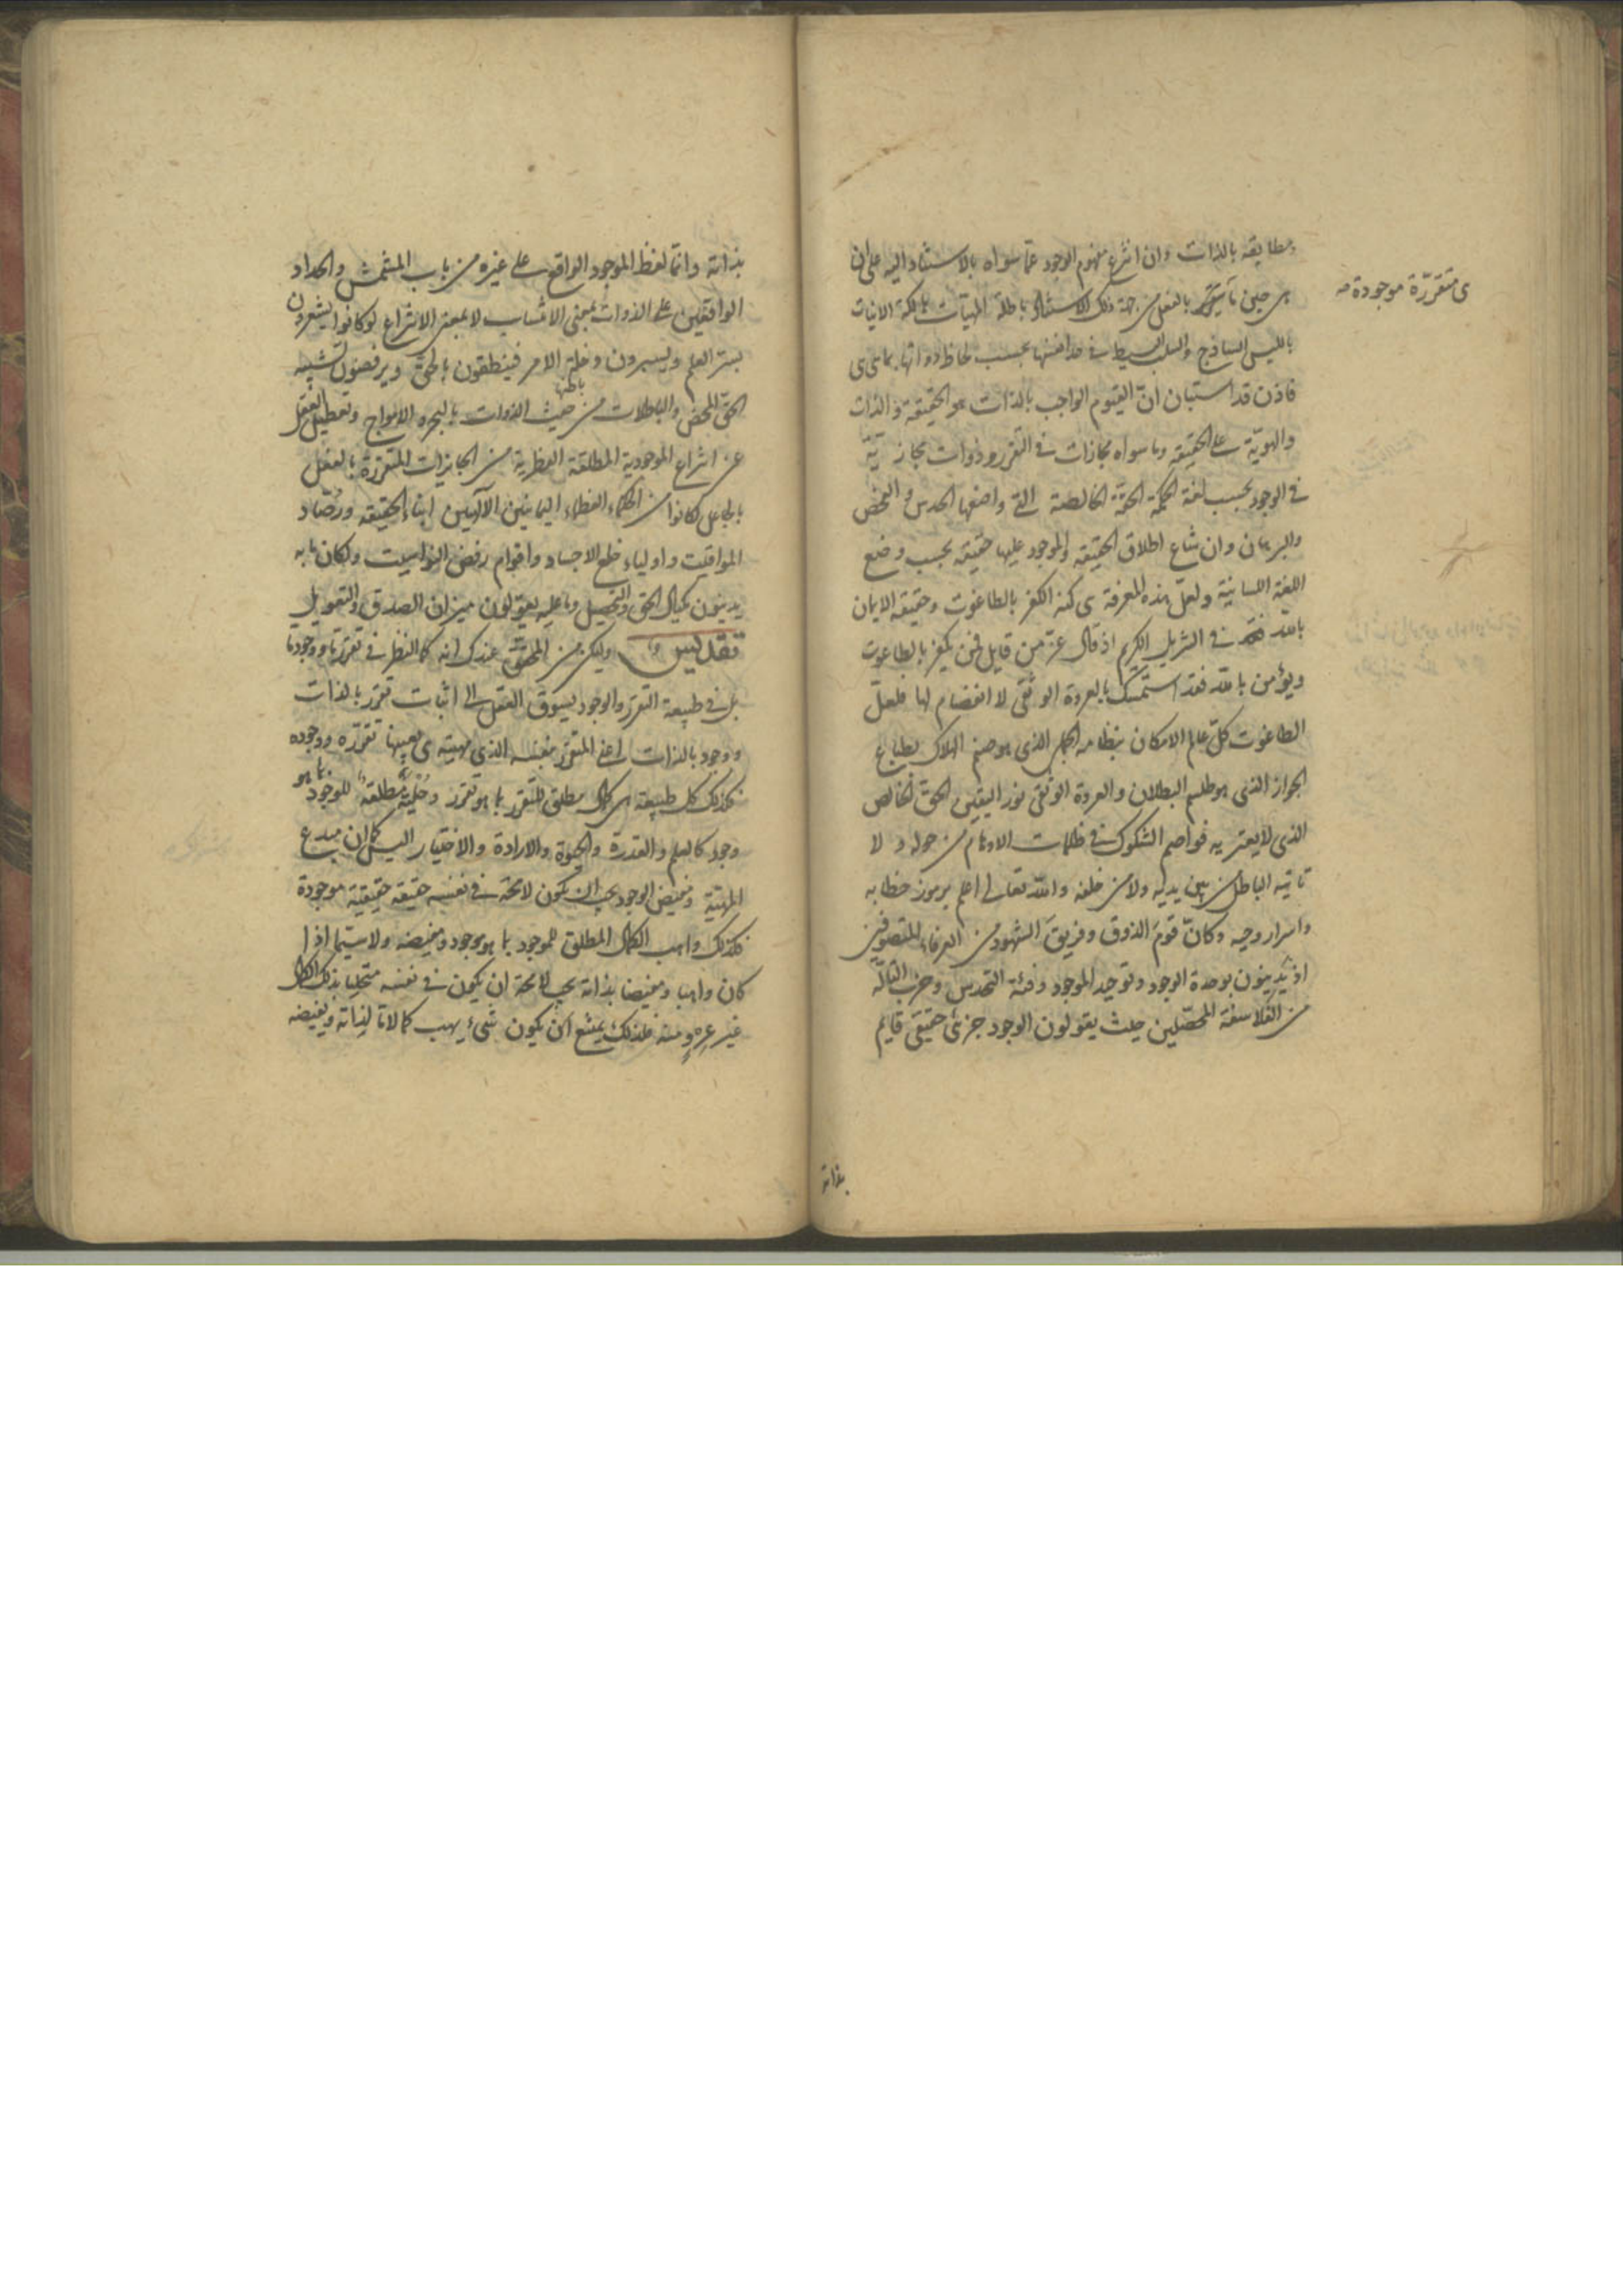 ومطابقه بالذات وان انتزع مفهوم الوجود عمّا سواه بالاستناد اليه على ان
هى متقررة موجودة صه
هى حين ما بالفعل من جهة ذلك الاستناد باطلة المهيات هالكة الانيات
بالليس الساذج والسلب البسيط فى حد انفسها بحسب لحاظ ذواتها بما هى هى
فاذن قد استبان انّ القيوم الواجب بالذات هو الحقيقة والذات
والهويّة على الحقيقة وما سواه مجازات فى التقرر وذوات مجازيّة
فى الوجود بحسب لغة الحكمة الحقّة الخالصة التى واضعها الحدس والفحص
والبرهان وان شاع اطلاق الحقيقة والموجود عليها حقيقة بحسب وضع
اللغة اللسانيّة ولعلّ هذه المعرفة هى كنه الكفر بالطاغوت وحقيقة الايمان
بالله فى التنزيل الكريم اذ قال عزّ من قايل فمن يكفر بالطاغوت
ويؤمن بالله فقد استمسك بالعروة الوثقى لا انفصام لها فلعلّ
الطاغوت كلّ عالم الامكان بنظامه الجملى الذى هو صنم الهلاك بطباع
الجواز الذى هو طلسم البطلان والعروة الوثقى نور اليقين الحق الخالص
الذى لا يعتريه فواصم الشكوك فى ظلمات الاوهام من حوله ولا
تاتيه الباطل من بين يديه ولا من خلفه والله تعالى اعلم برموز خطابه
واسرار وحيه وكانّ قوم الذوق وفريق الشهود من العرفاء المتصوفين
اذ يدينون بوحدة الوجود وتوحيد الموجود وفئة التحدس وحزب التالّه
من الفلاسفة المحصّلين حيث يقولون الوجود جزئى حقيقى قايم
بذاته
بذاته وانّما لفظ الموجود الواقع على غيره من باب المشمّش والحداد
الواقعين على الذوات بمعنى الانتساب لا بمعنى الانتزاع لو كانوا يشعرون
بسرّ العلم ويسبرون دخلة الامر فينطقون بالحق ويرفضون تشبيه
الحق المحض والباطلات من حيث الذوات باطنها بالبحر والامواج وتعطيل العقل
عن انتزاع الموجودية المطلقة الفطرية من الجايزات المتقررة بالفعل
بالجاعل لكانوا من الحكماء العظماء اليمانيين الالهيين ابناء الحقيقة ورصّاد
المواقيت واولياء خلع الاجساد واقوام رفض النواسيت ولكان ما به
يدينون مكيال الحق والتحصيل وما عليه يعولون ميزان الصدق والتعويل
تقديس وليكن من المحقق عندك انه كما النظر فى تقرر ما ووجود ما
بل فى طبيعة التقرر والوجود يسوق العقل الى اثبات تقرر بالذات
ووجود بالذات اعنى المتقرر بنفسه الذى مهيته هى بعينها تقرره ووجوده
فكذلك كل طبيعة هى كمال مطلق للتقرر بما هو تقرر وحلية مطلقة للوجود بما هو
وجود كالعلم والقدرة والحيوة والارادة والاختيار اليس كما ان مبدع
المهية ومفيض الوجود يجب ان يكون لا محة فى نفسه حقيقة حقيقية موجودة
فكذلك واهب الكمال المطلق للموجود بما هو موجود ومفيضه ولا سيما اذا
كان واهبا ومفيضا بذاته يجب لا محة ان يكون فى نفسه متحليا بذلك الكمال
غير عروٍ منه فلذلك يمتنع ان يكون شىء يهب كمالا ما لذاته ويفيضه